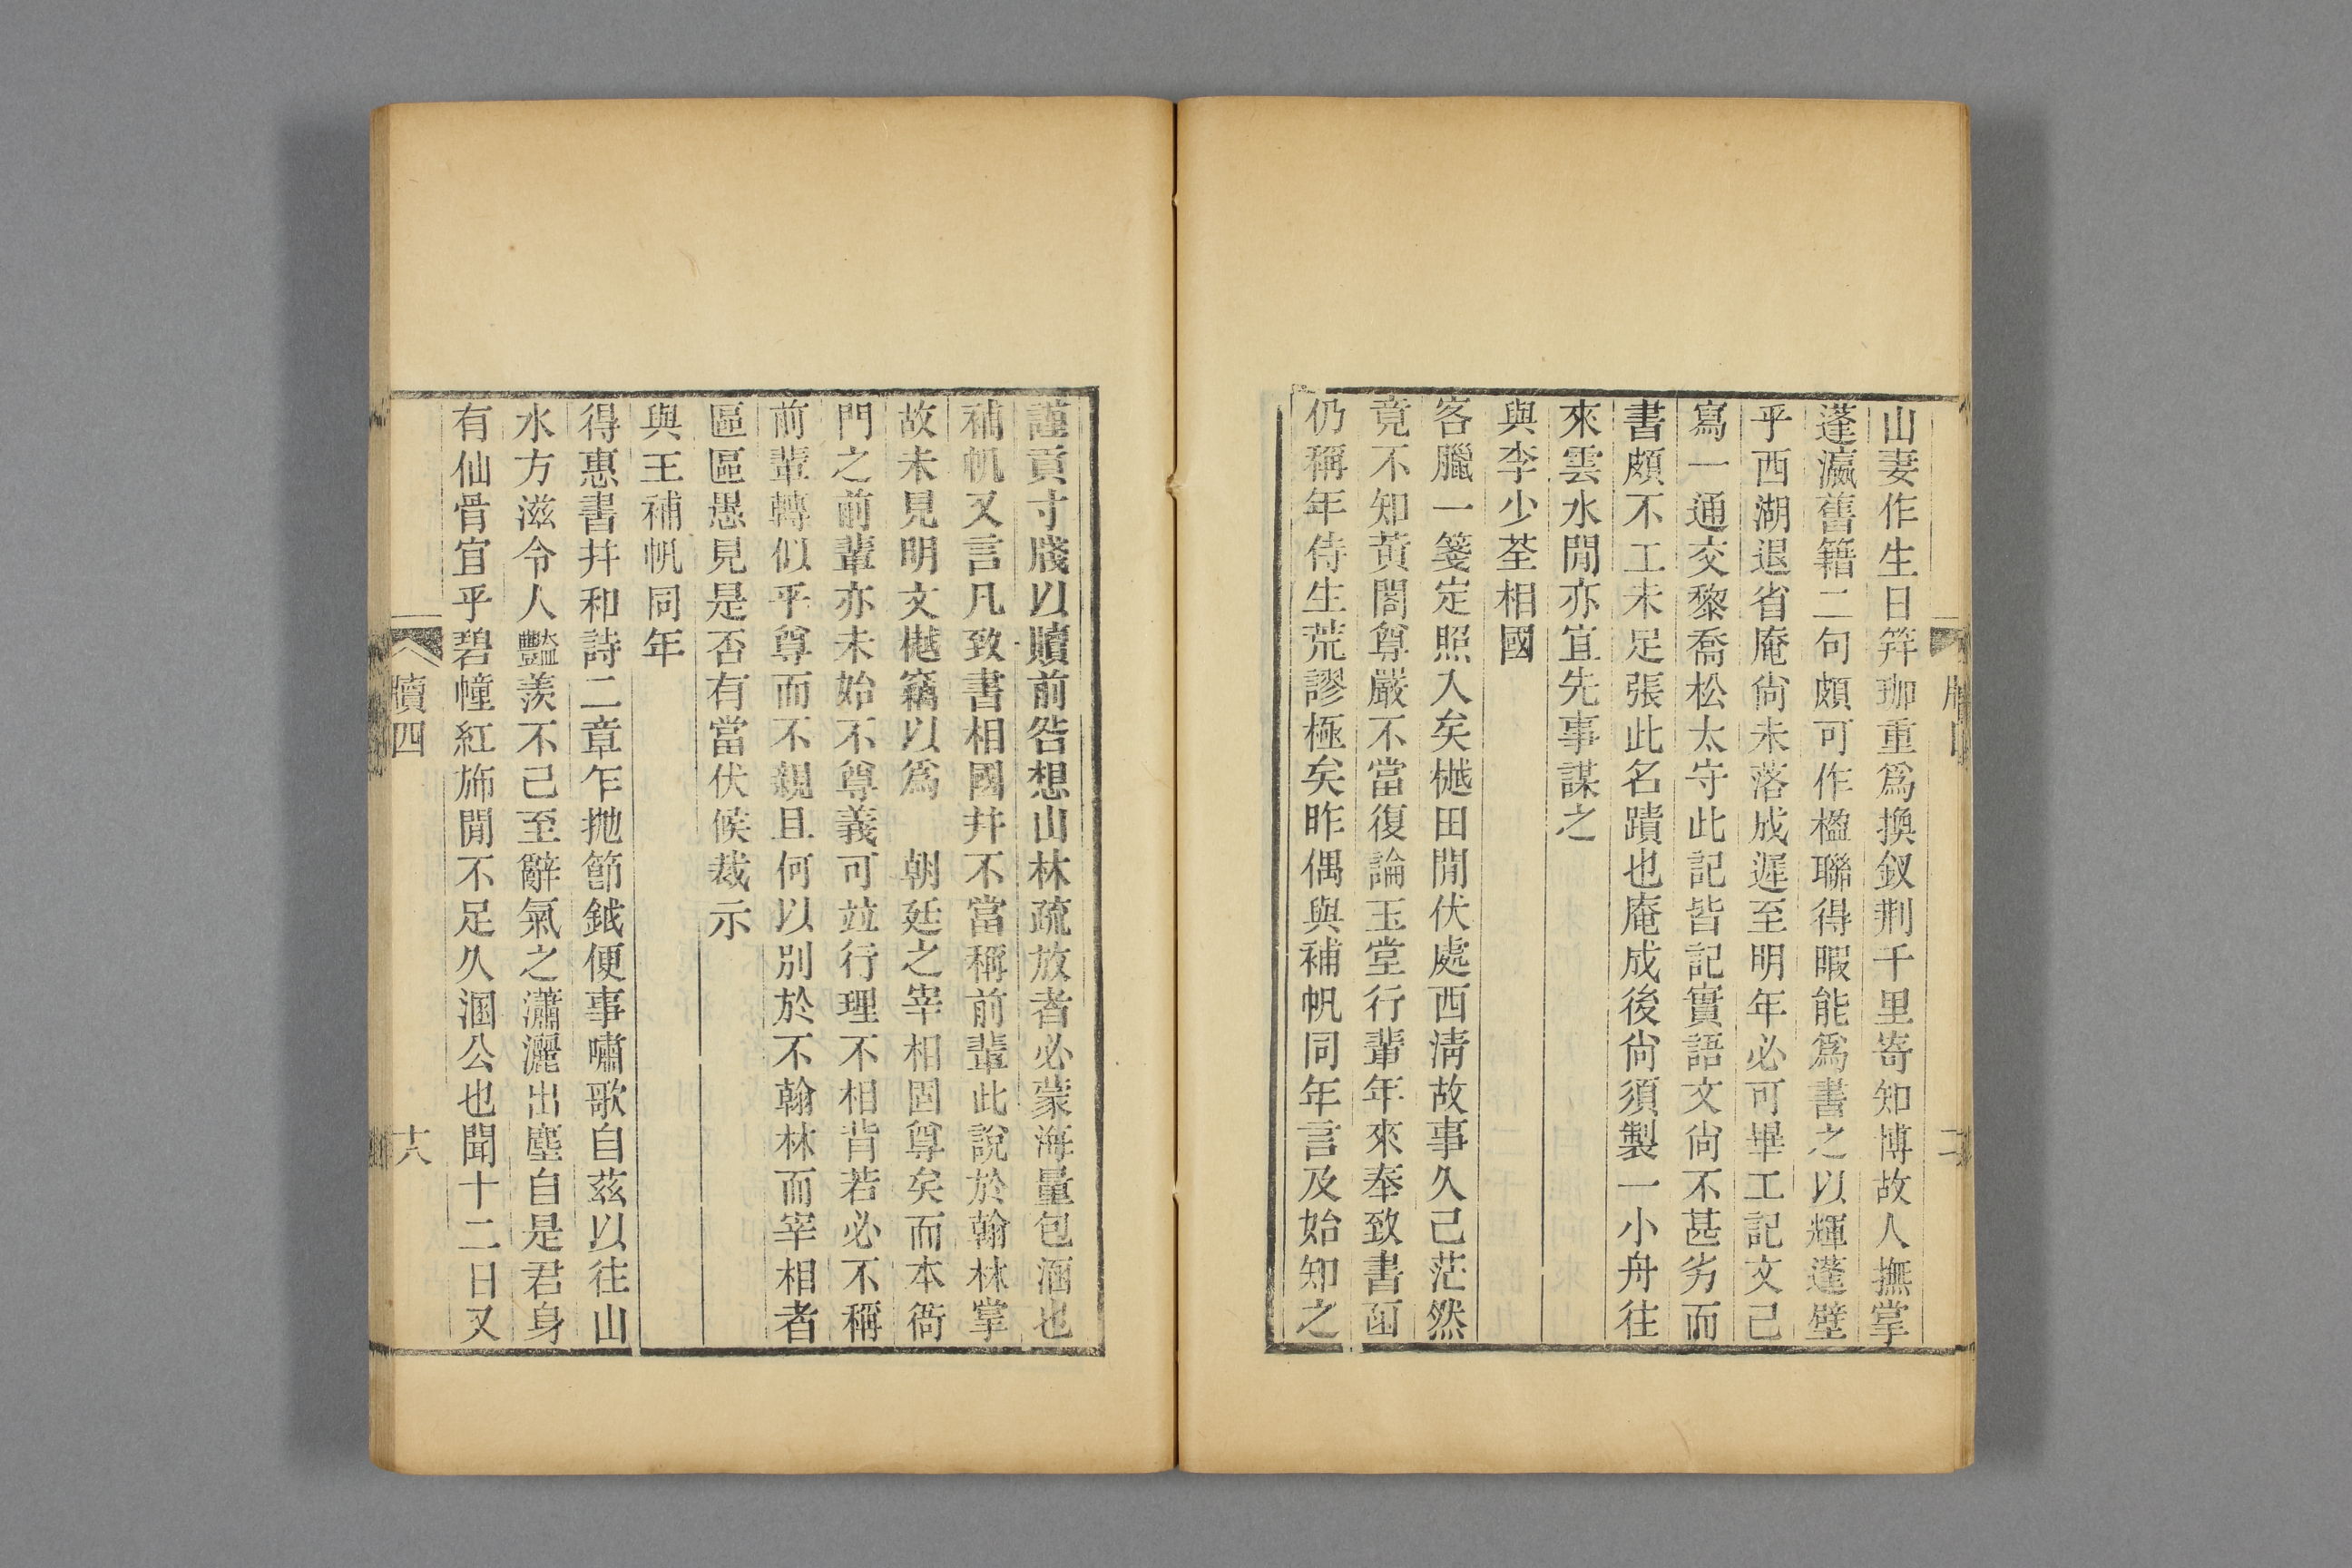 山妻作生日笄珈重爲換釵荆千里寄知博故人撫掌
蓬瀛舊籍二句頗可作楹聯得暇能爲書之以輝蓬壁
乎西湖退省庵尙未落成遲至明年必可畢工記文己
寫一通交黎喬松太守此記皆記實語文尙不甚劣而
書頗不工未足張此名蹟也庵成後尙須製一小舟往
來雲水閒亦宜先事謀之
與李少荃相國
客臘一箋定照入矣樾田閒伏處西淸故事久己茫然
竟不知黃閣尊嚴不當復論玉堂行輩年來奉致書函
仍稱年侍生荒謬極矣昨偶與補帆同年言及始知之
謹貢寸牋以贖前咎想山林疏放者必蒙海量包涵也
補帆又言凡致書相國幷不當稱前輩此說於翰林掌
故未見明文樾竊以爲 朝廷之宰相固尊矣而本衙
門之前輩亦未始不尊義可竝行理不相背若必不稱
前輩轉似乎尊而不親且何以別於不翰林而宰相者
區區愚見是否有當伏候裁示
與王補帆同年
得惠書幷和詩二章乍拋節鉞便事嘯歌自茲以往山
水方滋令人豔羨不己至辭氣之瀟灑出塵自是君身
有仙骨宜乎碧幢紅旆閒不足久溷公也聞十二日又
牘四
十八